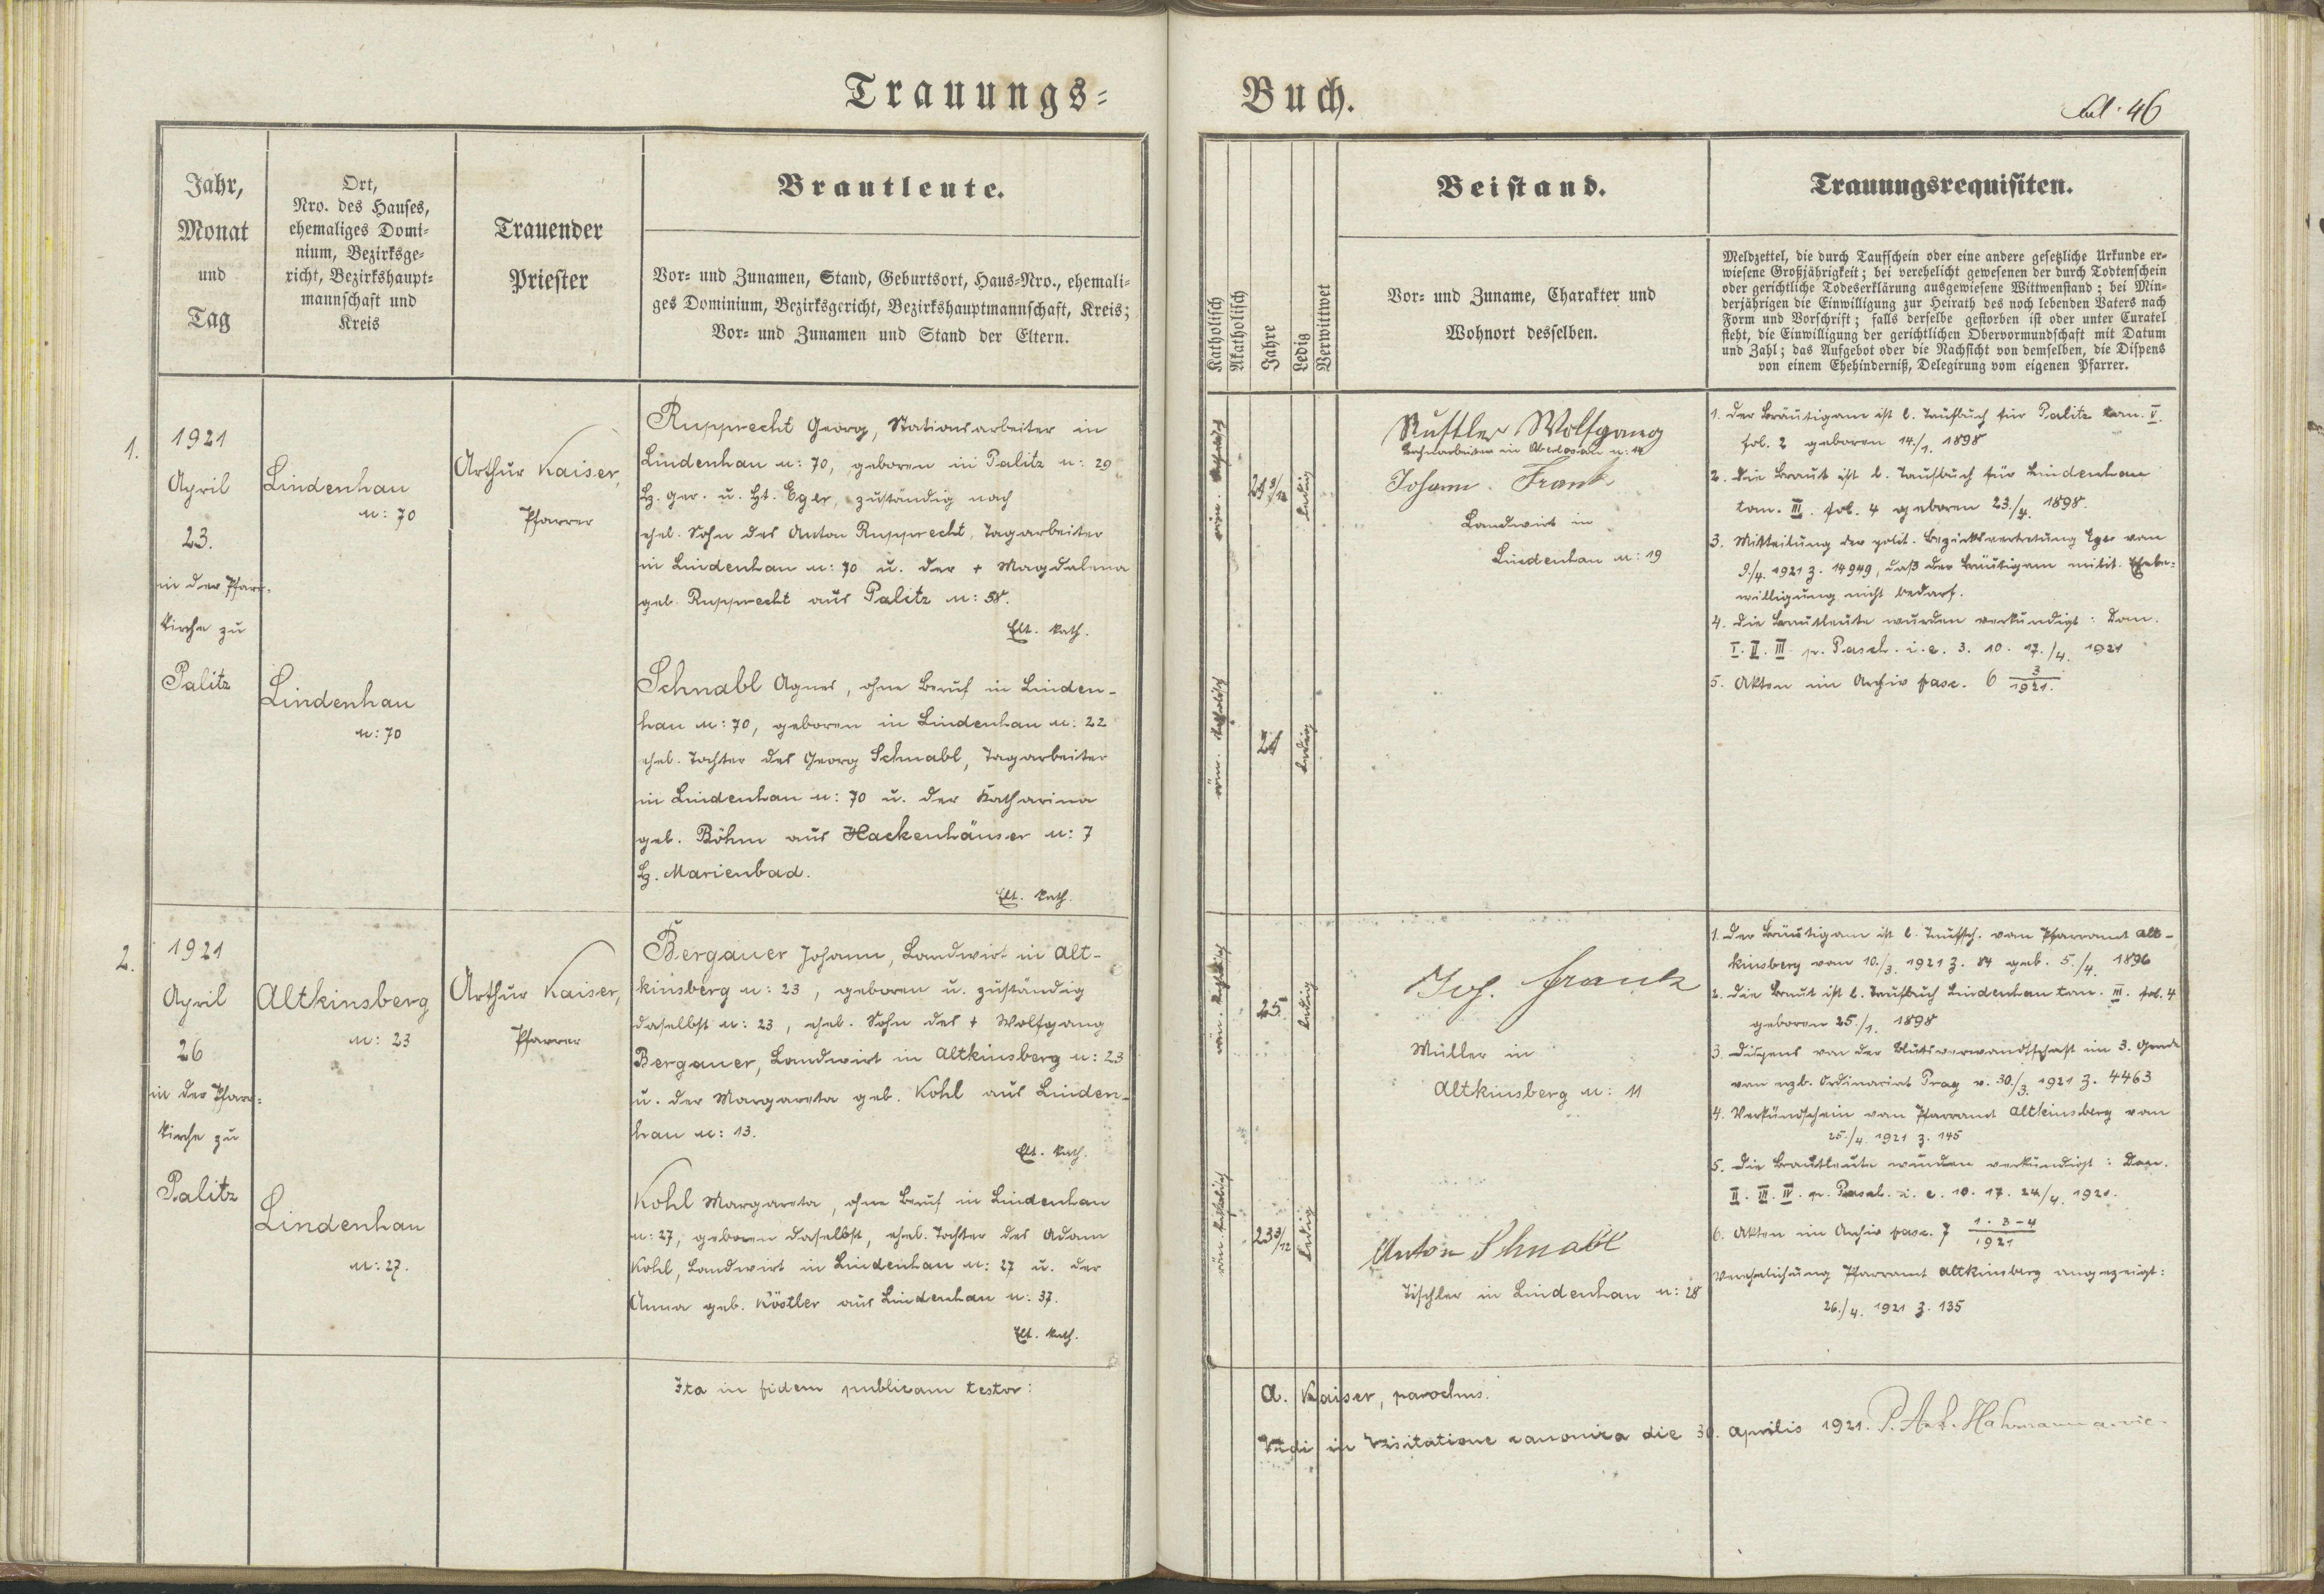 Trauungs-
Buch.
fol. 46
Jahr,
Monat
und
Tag
Ort,
Nro. des Hauses,
ehemaliges Domi-
nium, Bezirksge-
richt, Bezirkshaupt-
mannschaft und
Kreis
Trauender
Priester
Brautleute.
Vor- und Zunamen, Stand, Geburtsort, Haus-Nro., ehemali-
ges Dominium, Bezirksgericht, Bezirkshauptmannschaft, Kreis;
Vor- und Zunamen und Stand der Eltern.
Katholisch
Akatholisch
Jahre
Ledig
Verwittwet
Beistand.
Vor- und Zuname, Charakter und
Wohnort desselben.
Trauungsrequisiten.
Meldzettel, die durch Taufschein oder eine andere gesetzliche Urkunde er-
wiesene Großjährigkeit; bei verehelicht gewesenen der durch Todtenschein
oder gerichtliche Todeserklärung ausgewiesene Wittwenstand; bei Min-
derjährigen die Einwilligung zur Heirath des noch lebenden Vaters nach
Form und Vorschrift; falls derselbe gestorben ist oder unter Curatel
steht, die Einwilligung der gerichtlichen Obervormundschaft mit Datum
und Zahl; das Aufgebot oder die Nachsicht von demselben, die Dispens
von einem Ehehinderniß, Delegirung vom eigenen Pfarrer.
1.
1921
April
23.
in der Pfarr-
kirche zu
Palitz
Lindenhau
n: 70
Lindenhau
n: 70
Arthur Kaiser,
Pfarrer
Rupprecht Georg, Stationsarbeiter in
Lindenhau n: 70, geboren in Palitz n: 29
Bz. ger. u. Ht. Eger, zuständig nach
ehel. Sohn des Anton Rupprecht, Tagarbeiter
in Lindenhau n: 70 u. der + Magdalena
geb. Rupprecht aus Palitz n: 58.
Elt. kath.
Schnabl Agnes, ohne Beruf in Linden-
hau n: 70, geboren in Lindenhau n: 22
ehel. Tochter des Georg Schnabl, Tagarbeiter
in Lindenhau n: 70 u. der Katharina
geb. Böhm aus Hackenhäuser n: 7
Bz. Marienbad.
Elt. kath.
röm. katholisch
23 3/12
ledig
röm. katholisch
ledig
Wolfgang
Bahnarbeiter in Oberlosau n: 14
Johann Frank
Landwirt in
Lindenhau n: 19
1. Der Bräutigam ist l. Taufbuch für Palitz tom. V.
fol. 2 geboren 14./1. 1898
2. Die Braut ist l. Taufbuch für Lindenhau
tom. III. fol. 4 geboren 23./4. 1898.
3. Mitteilung der polit. Bezirksvertretung Eger vom
9./4. 1921 Z. 14949, daß der Bräutigam milit. Ehebe-
willigung nicht bedarf.
4. Die Brautleute wurden verkündigt: Dom.
I. II. III. p. Pasch. i. e. 3. 10. 17./4. 1921
5. Akten im Archiv fasc. 6 3/1921.
2.
1921
April
26
in der Pfarr-
kirche zu
Palitz
Altkinsberg
n: 23
Lindenhau
n: 27.
Arthur Kaiser,
Pfarrer
Bergauer Johann, Landwirt in Alt-
kinsberg n: 23, geboren u. zuständig
daselbst n: 23, ehel. Sohn des + Wolfgang
Bergauer, Landwirt in Altkinsberg n: 23
u. der Margareta geb. Kohl aus Linden-
hau n: 13.
Elt. kath.
Kohl Margareta, ohne Beruf in Lindenhau
n: 27, geboren daselbst, ehel. Tochter des Adam
Kohl, Landwirt in Lindenhau n: 27 u. der
Anna geb. Köstler aus Lindenhau n: 37.
Elt. kath.
röm. katholisch
25
ledig
röm. katholisch
23 3/12
ledig
Joh. Frank
Müller in
Altkinsberg n: 11
Anton Schnabl
Tischler in Lindenhau n: 28
1. Der Bräutigam ist l. Taufsch. vom Pfarramt Alt-
kinsberg vom 10./3. 1921 Z. 84 geb. 5./4. 1896
2. Die Braut ist l. Taufbuch Lindenhau tom. III. fol. 4
geboren 25./1. 1898
3. Dispens von der Blutsverwandtschaft im 3. Grade
vom erzb. Ordinariat Prag v. 30./3. 1921 Z. 4463
4. Verkündschein vom Pfarramt Altkinsberg vom
25./4. 1921 Z. 145
5. Die Brautleute wurden verkündigt: Dom.
II. III. IV. p. Pasch. i. e. 10. 17. 24/4. 1921.
6. Akten im Archiv fasc. 7 1. 3-4/1921
Verehelichung Pfarramt Altkinsberg angezeigt:
26./4. 1921 Z. 135
Ita in fidem publicam testor:
A. Kaiser, parochus.
Vidi in Visitatione canonica die 30. Aprilis 1921. P. Ant. Hahmann a. vic.